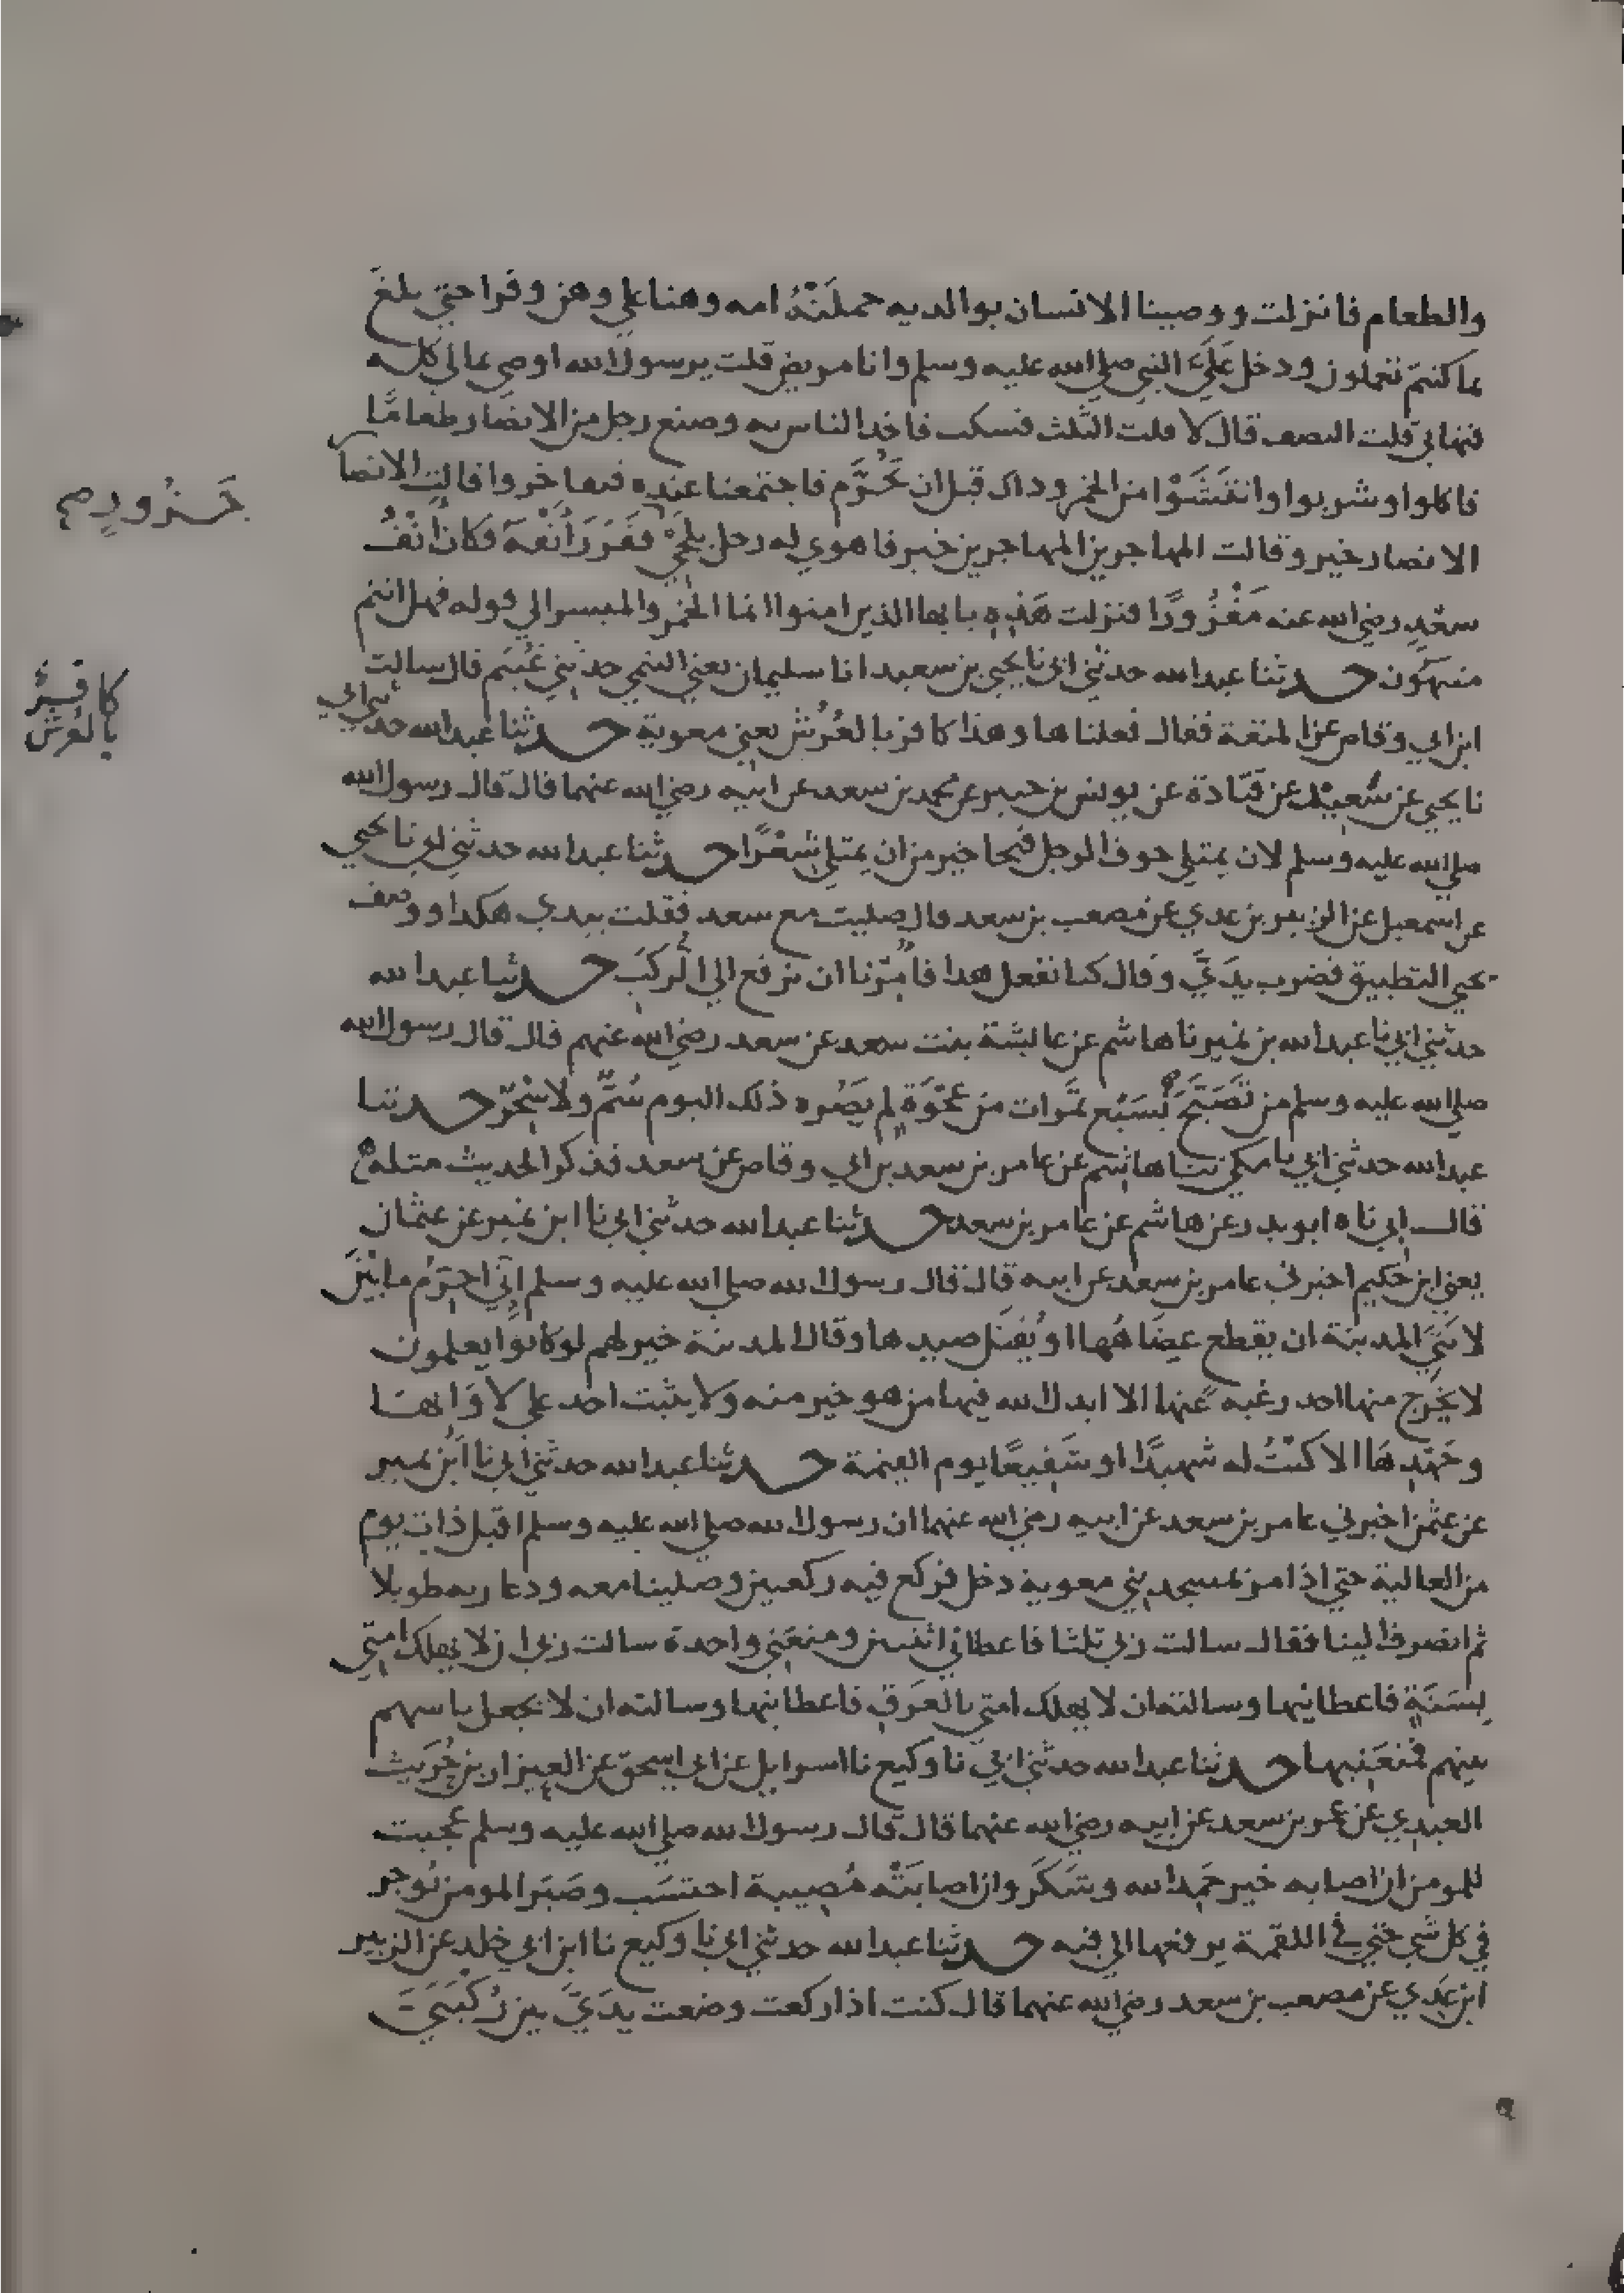 والطعام فانزلت ووصينا الانسان بوالديه حملَتْهُ امه وهنا علي وهن وقرا حتي بلغ
بما كنتم تعملون ودخل عَلَيَّ النبي صلي الله عليه وسلم وانا مريض قلت يرسول الله اوصي بمالي كله
فنهاني قلت النصف قال لا قلت الثلث فسكت فاخذ الناس به وصنع رجل من الانصار طعامًا
فاكلوا وشربوا وانتَشَوْا من الخمر وذاك قبل ان تُحَرَّم فاجتمعنا عنده فتفاخروا قالت الانصار
الانصار خير وقالت المهاجرين المهاجرين خير فاهوي له رجل بلَحْيَيْ ففَزَرَ اَنْفَهُ فكان اَنْفُ
سعْدٍ رضي الله عنه مَفْزُورًا فنزلت هَذِهِ يا يها الذين امنوا انما الخمر والميسر الي قوله فهل انتم
منتهون حدثنا عبد الله حدثني ابي نا يحيي بن سعيد انا سليمان يعني التيمي حدثني غُنَيْم قال سالت
ابن ابي وقاص عن المتعة فقال فعلناها وهذا كافر بالعُرُش يعني معوية حدثنا عبد الله حدثني ابي
نا يحيي عن شُعبة عن قَتادة عن يونس بن جبير عن محمد بن سعد عن ابيه رضي الله عنهما قال قال رسول الله
صلي الله عليه وسلم لان يمتلي جوف الرجل قيحا خير من ان يمتلي شعْرًا حدثنا عبد الله حدثني ابي نا يحيي
عن اسمعيل عن الزبير بن عدي عن مصعب بن سعد قال صليت مع سعد فقلت بيدي هكذا ووصف
يحيي التطبيق فضرب يَدَيَّ وقال كنا نفعل هذا فاُمِرْنا ان نرفع الي الرُكَب حدثنا عبد الله
حدثني ابي نا عبد الله بن نمير نا هاشم عن عائشة بنت سعد عن سعد رضي الله عنهم قال قال رسول الله
صلي الله عليه وسلم من تَصَبَّحَ بِسَبْع تَمَرات من عَجْوَةٍ لم يَضُره ذلك اليوم سُمٌّ ولا سِحْرٌ حدثنا
عبد الله حدثني ابي نا مكي نا هاشم عن عامر بن سعد بن ابي وقاص عن سعد فذكر الحديث مثله
قال ابي ناه ابو بدر عن هاشم عن عامر بن سعد حدثنا عبد الله حدثني ابي نا ابن نمير عن عثمان
يعني ابن حكيم اخبرني عامر بن سعد عن ابيه قال قال رسول الله صلي الله عليه وسلم اِنّي احرّم ما بَيْنَ
لابَتَيِ المدينة ان يقطع عِضَاهُها او يُقتَل صيدها وقال المدينة خير لهم لو كانوا يعلمون
لا يخرج منها احد رغبة عنها الا ابدل الله فيها من هو خير منه ولا يثبت احد علي لاوَائها
وجَهْدِهَا الا كنْتُ له شهيدًا او شَفِيعًا يوم القيمة حدثنا عبد الله حدثني ابي نا ابْن نمير
عن عثمن اخبرني عامر بن سعد عن ابيه رضي الله عنهما ان رسول الله صلي الله عليه وسلم اقبل ذات يوم
من العالية حتي اذا مر بمسجد بني معوية دخل فركع فيه ركعتين وصلينا معه ودعا ربه طويلا
ثم انصرف الينا فقال سالت ربي ثلثا فاعطاني اثنتين ومنعَني واحدة سالت ربي ان لا يهلك امتي
بِسَنَةٍ فاعطانيها وسالته ان لا يهلك امتي بالغرق فاعطانيها وسالته ان لا يجعل باسهم
بينهم فمنعَنيها حدثنا عبد الله حدثني ابي نا وكيع نا اسرايل عن ابي اسحق عن العيزار بن حُرَيث
العبدي عن عمر بن سعد عن ابيه رضي الله عنهما قال قال رسول الله صلي الله عليه وسلم عجبت
للمومن ان اصابه خير حَمِد الله وشَكَر وان اصابَتْه مُصِيبة احتسَب وصَبَر المومن يُوجر
في كل شي حتي في اللقمة يرفعها الي فيه حدثنا عبد الله حدثني ابي نا وكيع نا ابن ابي خلد عن الزبير
ابن عَدِي عن مصعب بن سعد رضي الله عنهما قال كنت اذا ركعت وضعت يدَيَّ بين رُكْبَتَيَّ
كافِرٌ
بالعُرُش